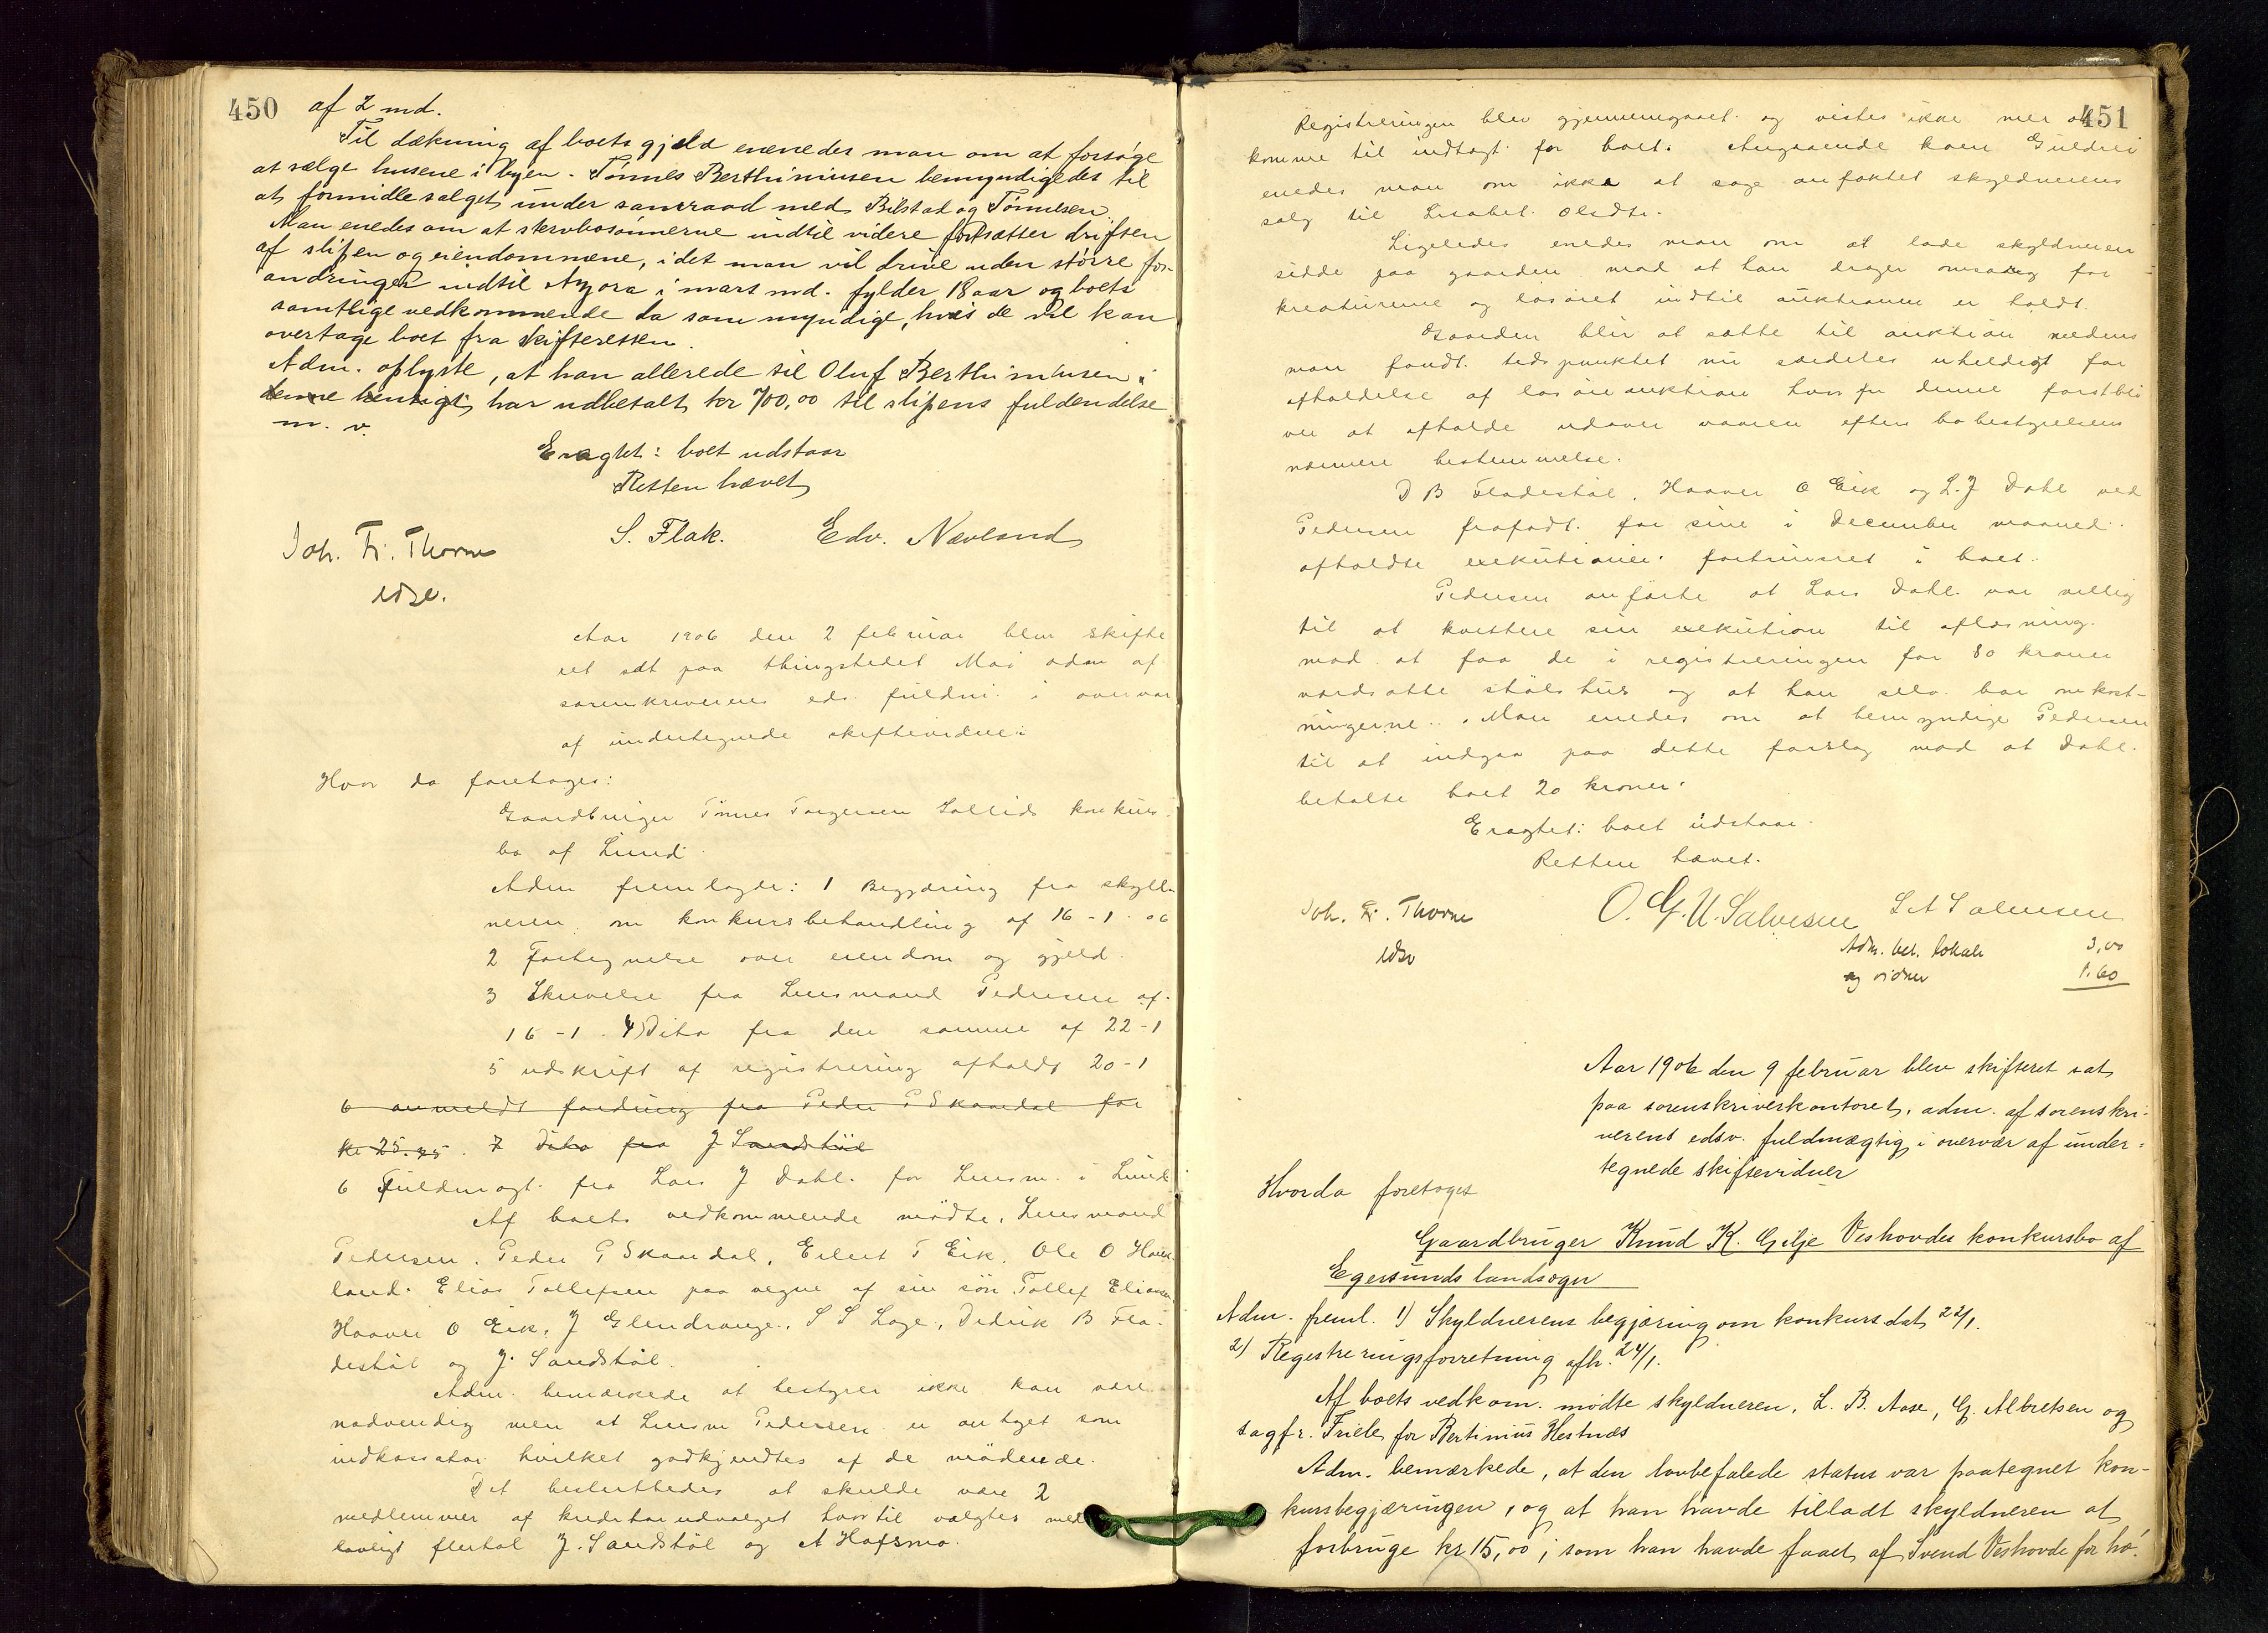 450
af 2 md.
Til dækning af boets gjæld enenedes man om at forsøge
at sælge husene i byen. Tønnes Berthiniusen bemyndigedes til
at formidle salget under samraad med Bilstad og Tønnesen.
Man enedes om at stervbosønnerne indtil videre fortsætter driften
af slipen og eiendommene, idet man vil drive uden større for-
andringer indtil Azora i mart md. fylder 18 aar og boets
samtlige vedkommende da som myndige, hvis de vil kan
overtage boet fra skifteretten.
Adm. oplyste, at han allerede til Oluf Berthiniusen i
denne hensigt har udbetalt kr 700,00 til slipens fuldendelse
m. v.
Eragtet: boet udstaar
Retten hævet
Joh. Fr. Thorne
edsv.
S. Flak. Edv. Nævland
Aar 1906 den 2 februar blev skifte
ret sat paa thingstedet Moi adm af
sorenskriverens eds. fuldm. i overvær
af undertegnede skiftevidner:
Hvor da foretages:
Gaardbruger Tønnes Torgersen Sollids konkurs
bo af Lund.
Adm fremlagde: 1 Begjæring fra skyld
neren om konkursbehandling af 16-1-06
2 Fortegnelse over eiendom og gjæld.
3 Skrivelse fra Lensmand Pedersen af
16-1. 4) Dito fra den samme af 22-1
5 udskrift af registrering afholdt 20-1
6 anmeldt fordring fra Peder P Skaardal for
kr 25.75. 7 Dito fra J Sandstøl
6 Fuldmagt fra Lars J Dahl for Lensm. i Lund
Af boets vedkommende mødte: Lensmand
Pedersen, Peder P Skaardal, Eilert T Eik, Ole O Hauk
land. Elias Tollefsen paa vegne af sin søn Tollef Eliassen
Haaver O Eik, J Glendrange, S S Lage, Didrik B Fla-
destøl og J. Sandstøl.
Adm. bemærkede at bestyrer ikke kan være
nødvendig men at Lensm Pedersen er antaget som
indkassator hvilket godkjendtes af de mødende.
Det besluttedes at skulde være 2
medlemmer af kreditorudvalget hvortil valgtes med
lovligt flertal J. Sandstøl og A Hafsmo.
451
Registreringen blev gjennemgaaet og vistes ikke mer at
komme til indtægt for boet. Angaaende koen Guldrei
enedes man om ikke at søge anfæktet skyldnerens
salg til Lisabet Olsdtr.
Ligeledes enedes man om at lade skyldneren
sidde paa gaarden mod at han drager omsorg for
kreaturerne og løsøret indtil auktionen er holdt.
Gaarden blir at sætte til auktion medens
man fandt tidspunktet nu særdeles uheldigt for
afholdelse af løsøreauktion hvorfor denne forstbli
ver at afholde udover vaaren efter bobestyrelsens
nærmere bestemmelse.
D B Fladestøl, Haaver O Eik og L. J Dahl ved
Pedersen frafaldt for sine i december maaned
afholdte exekutioner fortrinsret i boet.
Pedersen anførte at Lars Dahl var villig
til at kvittere sin exekution til aflæsning
mod at faa de i registreringen for 80 kroner
værdsatte stølshus og at han selv bar omkost-
ningerne. Man enedes om at bemyndige Pedersen
til at indgaa paa dette forslag mod at Dahl
betalte boet 20 kroner.
Eragtet: boet udstaar.
Retten hævet.
Joh. Fr. Thorne
edsv
O. G. U. Salvesen S A Salmesen
Adm. bet. lokale 3,00
og vidner 1.60
Aar 1906 den 9 februar blev skifteret sat
paa sorenskriverkontoret, adm. af sorenskri-
verens edsv. fuldmægtig i overvær af under-
tegnede skiftevidner
Hvorda foretoges
Gaardbruger Knud K. Gilje Veshovdes konkursbo af
Egersunds landsogn
Adm. freml. 1) Skyldnerens begjæring om konkurs dat 22/1.
2) Registreringsforretning afh. 24/1.
Af boets vedkom. mødte skyldneren, L. B. Aase, G. Albretsen og
sagfr. Friele for Bertinius Hestnæs
Adm. bemærkede, at den lovbefalede status var paategnet kon-
kursbegjæringen, og at han havde tilladt skyldneren at
forbruge kr 15,00, som han havde faaet af Svend Veshovde for hø.